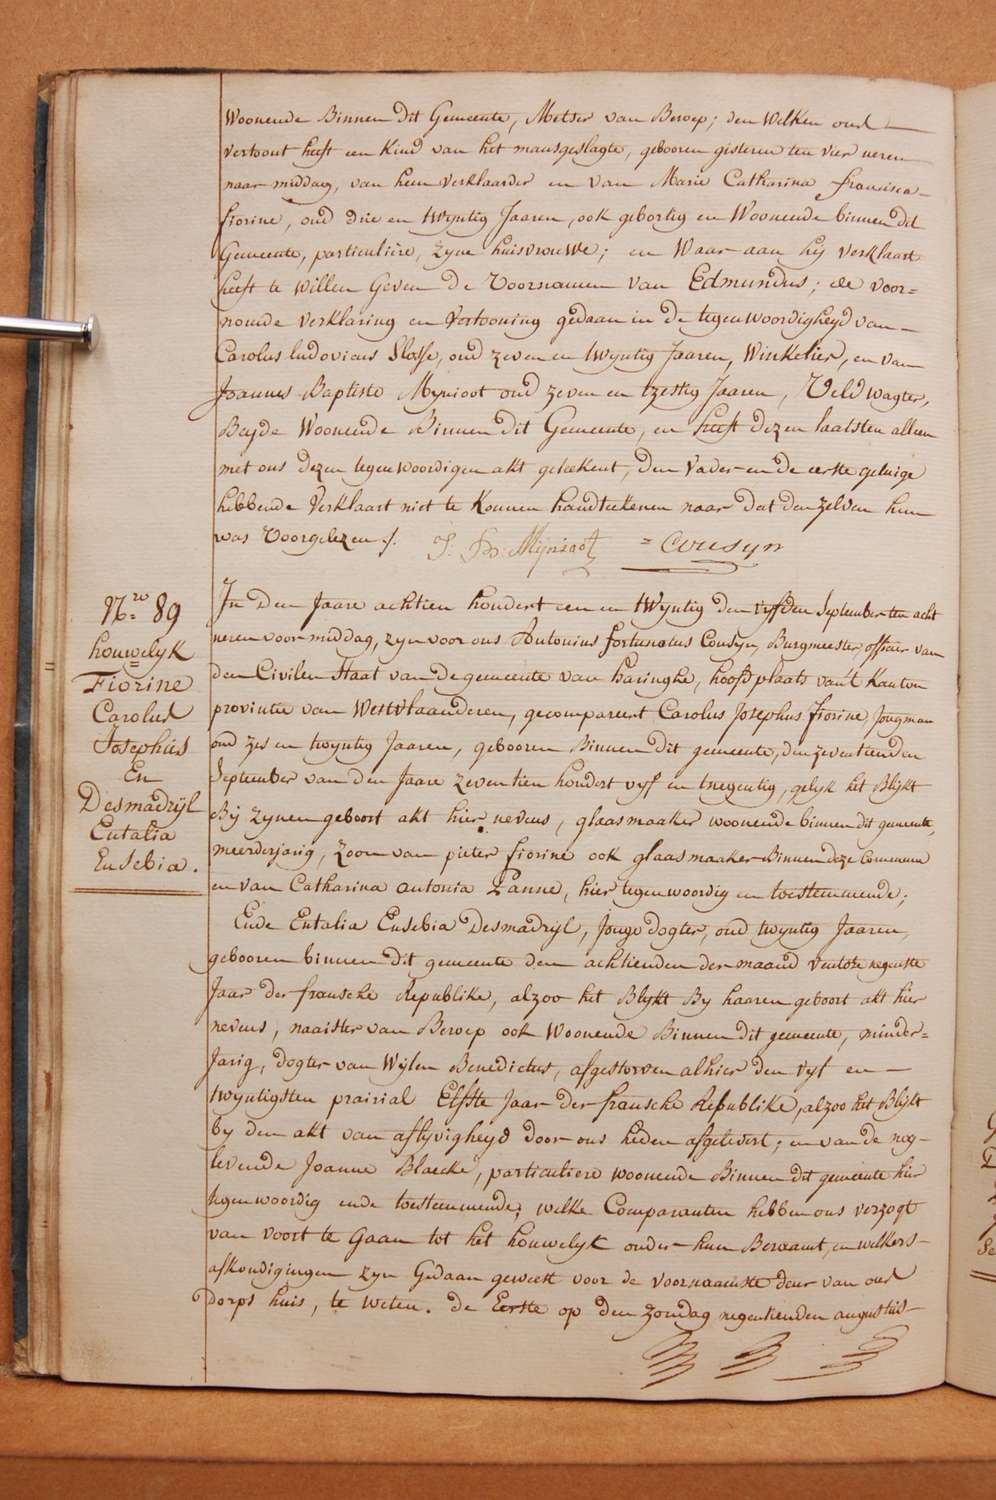 Woonende Binnen dit Gemeente, Metser van Beroep; den Welken ons
vertoont heeft een Kind van het mansgeslagte, gebooren gisteren ten vier ueren
naar middag, van hem verklaarder en van Marie Catharina francisca
fiorine, oud drie en twyntig Jaaren, ook gebortig en Woonende binnen dit
Gemeente, particuliere, zyne huisvrouwe; en Waar aan hij verklaart
heeft te willen Geven de Voornamen van Edmundus; de voor=
noemde verklaring en Vertooning gedaan in de tegenwoordigheyd van
Carolus ludovicus Slosse, oud zeven en twyntig Jaaren, Winkelier, en van
Joannes Baptiste Mynioot oud zeven en tzestig Jaaren, Veld wagter,
Beyde Woonende Binnen dit Gemeente, en heeft dezen laatsten alleen
met ons dezen tegenwoordigen akt geteekent, den Vader en de eerste getuige
hebbende Verklaart niet te Konnen handteekenen naar dat den zelven hun
was Voorgelezen ./. J. B. Mijnioot = Cousyn
N.ro 89
houwelyk
Fiorine
Carolus
Josephus
En
Desmadrijl
Eutalia
Eusebia.
In Den Jaare achtien hondert een en twyntig den vyfden September ten acht
ueren voor middag, zyn voor ons Antonius fortunatus Cousyn, Burgmeester, officier van
den Civilen Staat van de gemeente van haringhe, hoofdplaats van 't Kanton
provintie van Westvlaanderen, gecompareert Carolus Josephus Fiorine, Jongman
oud zes en twyntig Jaaren, gebooren Binnen dit gemeente, den zeventienden
September van den Jaare zeventien hondert vyf en tnegentig, gelyk het Blykt
Bij zynen geboort akt hier nevens, glaasmaaker woonende binnen dit gemeente,
meerderjarig, zoon van pieter fiorine ook glaasmaaker Binnen deze Commune
en van Catharina antonia Lanne, hier tegenwoordig en toestemmende;
Ende Eutalia Eusebia Desmadrijl, Jonge dogter, oud twyntig Jaaren,
gebooren binnen dit gemeente den achtienden der maand Ventose negenste
Jaar der fransche Republike, alzoo het Blykt By haaren geboort akt hier
nevens, naaister van Beroep ook Woonende Binnen dit gemeente, minder=
Jarig, dogter van Wylen Benedictus, afgestorven alhier den vyf en
twyntigsten prairial Elfste Jaar der fransche Republike, alzoo het Blykt
by den akt van aflyvigheyd door ons heden afgelevert; en van de nog
levende Joanne Blaecke, particuliere woonende Binnen dit gemeente hier
tegenwoordig ende toestemmende; welke Comparanten hebben ons verzogt
van voort te Gaan tot het houwelyk onder hun Beraemt, en welkers
afkondigingen zyn Gedaan geweest voor de voornaemste deur van ons
Dorps huis, te weten. de Eerste op den zondag negentienden augustus